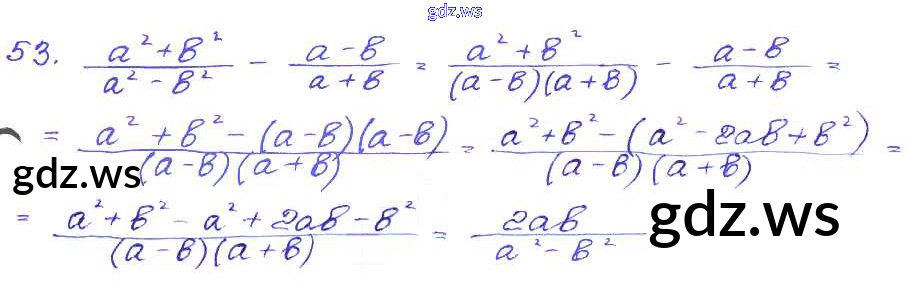 gdz.ws
53. (a² + b²)/(a² - b²) - (a - b)/(a + b) = (a² + b²)/((a - b)(a + b)) - (a - b)/(a + b) =
= (a² + b² - (a - b)(a - b))/((a - b)(a + b)) = (a² + b² - (a² - 2ab + b²))/((a - b)(a + b)) =
gdz.ws
= (a² + b² - a² + 2ab - b²)/((a - b)(a + b)) = 2ab/(a² - b²)
gdz.ws